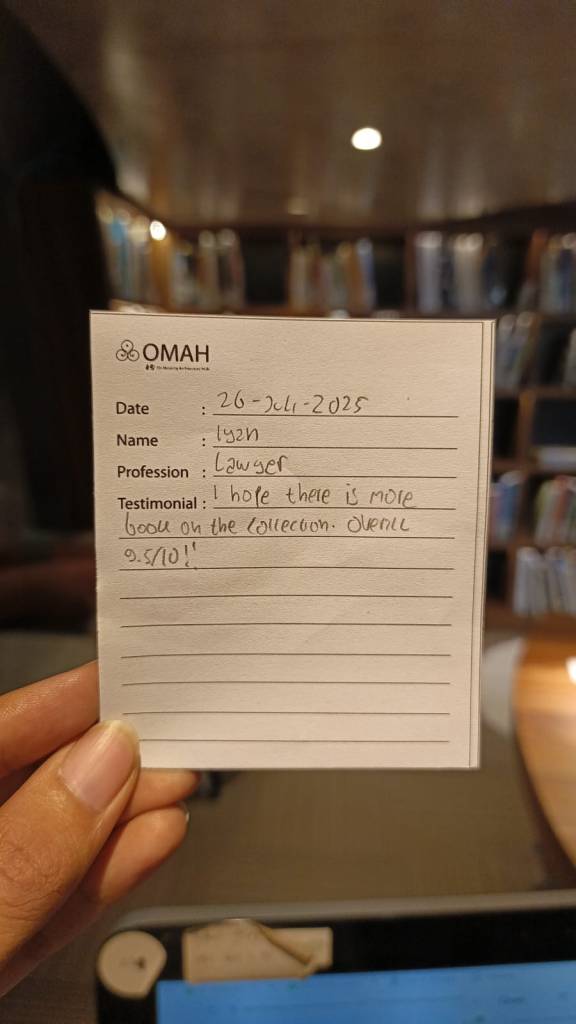 OMAH
Date : 26-Juli-2025
Name : Iyan
Profession : Lawyer
Testimonial : I hope there is more
book on the collection. Overall
9.5/10!!